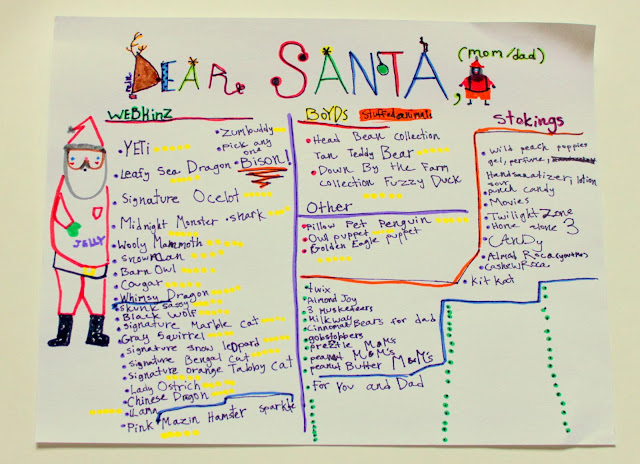 DEAR SANTA,
(mom/dad)
WEBKinZ
YETi
Leafy Sea Dragon
Signature Ocelot
Midnight Monster
shark
Wooly Mammoth
Snowman
Barn Owl
Cougar
Whimsy Dragon
skunk sassy
Black Wolf
signature Marble Cat
Gray Squirrel
signature snow leppard
signature Bengal Cat
signature orange Tabby Cat
Lady Ostrich
Chinese Dragon
LLama
Pink Mazin Hamster Sparkle
Zumbuddy
Pick any one
Bison!
JOLLY
BOYDS
Stuffed animals
Head Bean Collection
Tan Teddy Bear
Down By the Farm
collection Fuzzy Duck
Other
Pillow Pet Penguin
Owl puppet
Golden Eagle puppet
Stokings
wild peach poppies
gel, perfume,
Handsanatizer, lotion
sour
punch candy
Movies
Twilight Zone
Home alone 3
CANDy
Almod Roca
Cashew Roca
Kit Kat
twix
Almond Joy
3 Muskeheers
Milkway
Cinnomat Bears for dad
gobstoppers
preztle M&M's
peanat M&M's
peanut Butter M&M's
For You and Dad